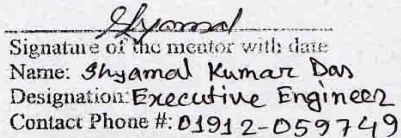 Shyamal
Signature of the mentor with date
Name: Shyamal Kumar Das
Designation: Executive Engineer
Contact Phone #: 01912-059749